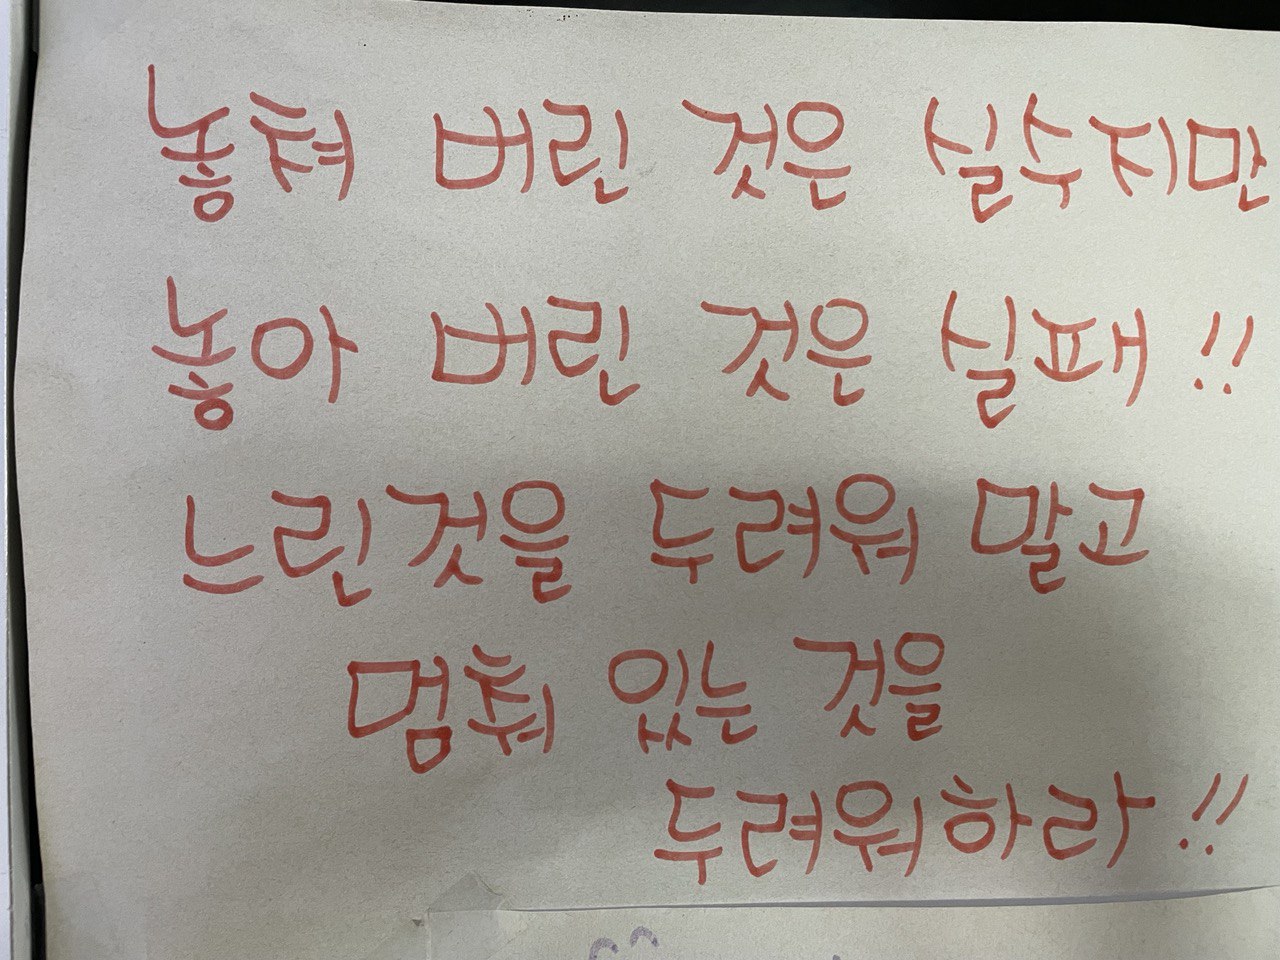 놓쳐 버린 것은 실수지만
놓아 버린 것은 실패!!
느린것을 두려워 말고
멈춰 있는 것을
두려워하라!!